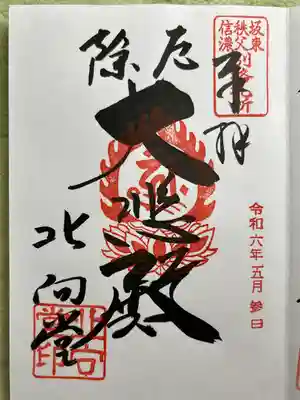 坂東
秩父
信濃
奉拝
令和六年五月参日
厄除
大悲殿
北向堂
北向
堂印